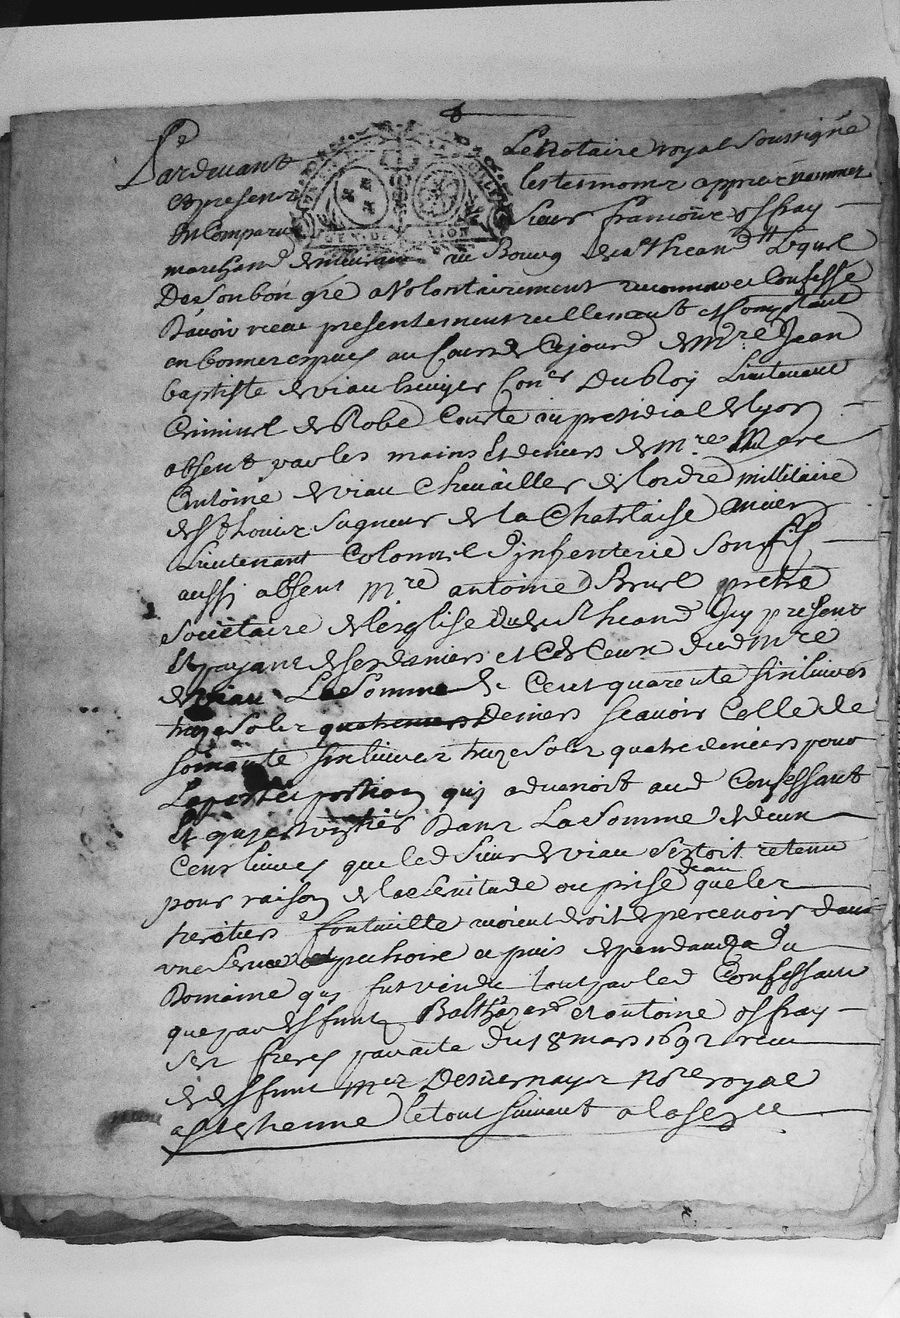 Pardevant Le Notaire royal soussigné
et presens les tesmoins appres nommes
En Comparu Sieur françois offray
marchand demeurant au Bourg de st heand Lequel
De son bon gré a Volontairement reconnu et Confessé
D'avoir receu presentement reellement et Comptant
en bonnes especes au Cours de Ce jourd de Mre Jean
baptiste deviau Escuyer Coner Du Roy Lieutenant
Criminel de Robe Courte au presidial de lyon
absent par les mains et deniers de mre Marc
Antoine deviau Chevallier de lordre millitaire
de st Louis Seigneur de la Chatelaise ancien
Lieutenant Colonnel d'infenterie son fils
aussi absent mre antoine Brurl pretre
Sociétaire de l'esglise dud st heand Icy present
Et payant de ses deniers et Ceux dud mre
deviau La Somme de Cent quarente six livres
treze solz deniers scavoir Celle de
soixante six livres treze solz quatre deniers pour
La portion quj advenoit aud Confessant
Dans La Somme de deux
Cens livres que led Sieur deviau sestoit retenu
pour raison de la servitude ou prise deau que les
heretiers fontvielle avoient droit de percevoir dans
une Serve et puis dependants du
Domaine quj fut vendu tout par led Confessant
que par deffunt Balthazard et antoine offray
ses freres par acte du 18 mars 1692 receu
de deffunt mre Desvernays nore royal
a st Ethienne le tout suivant